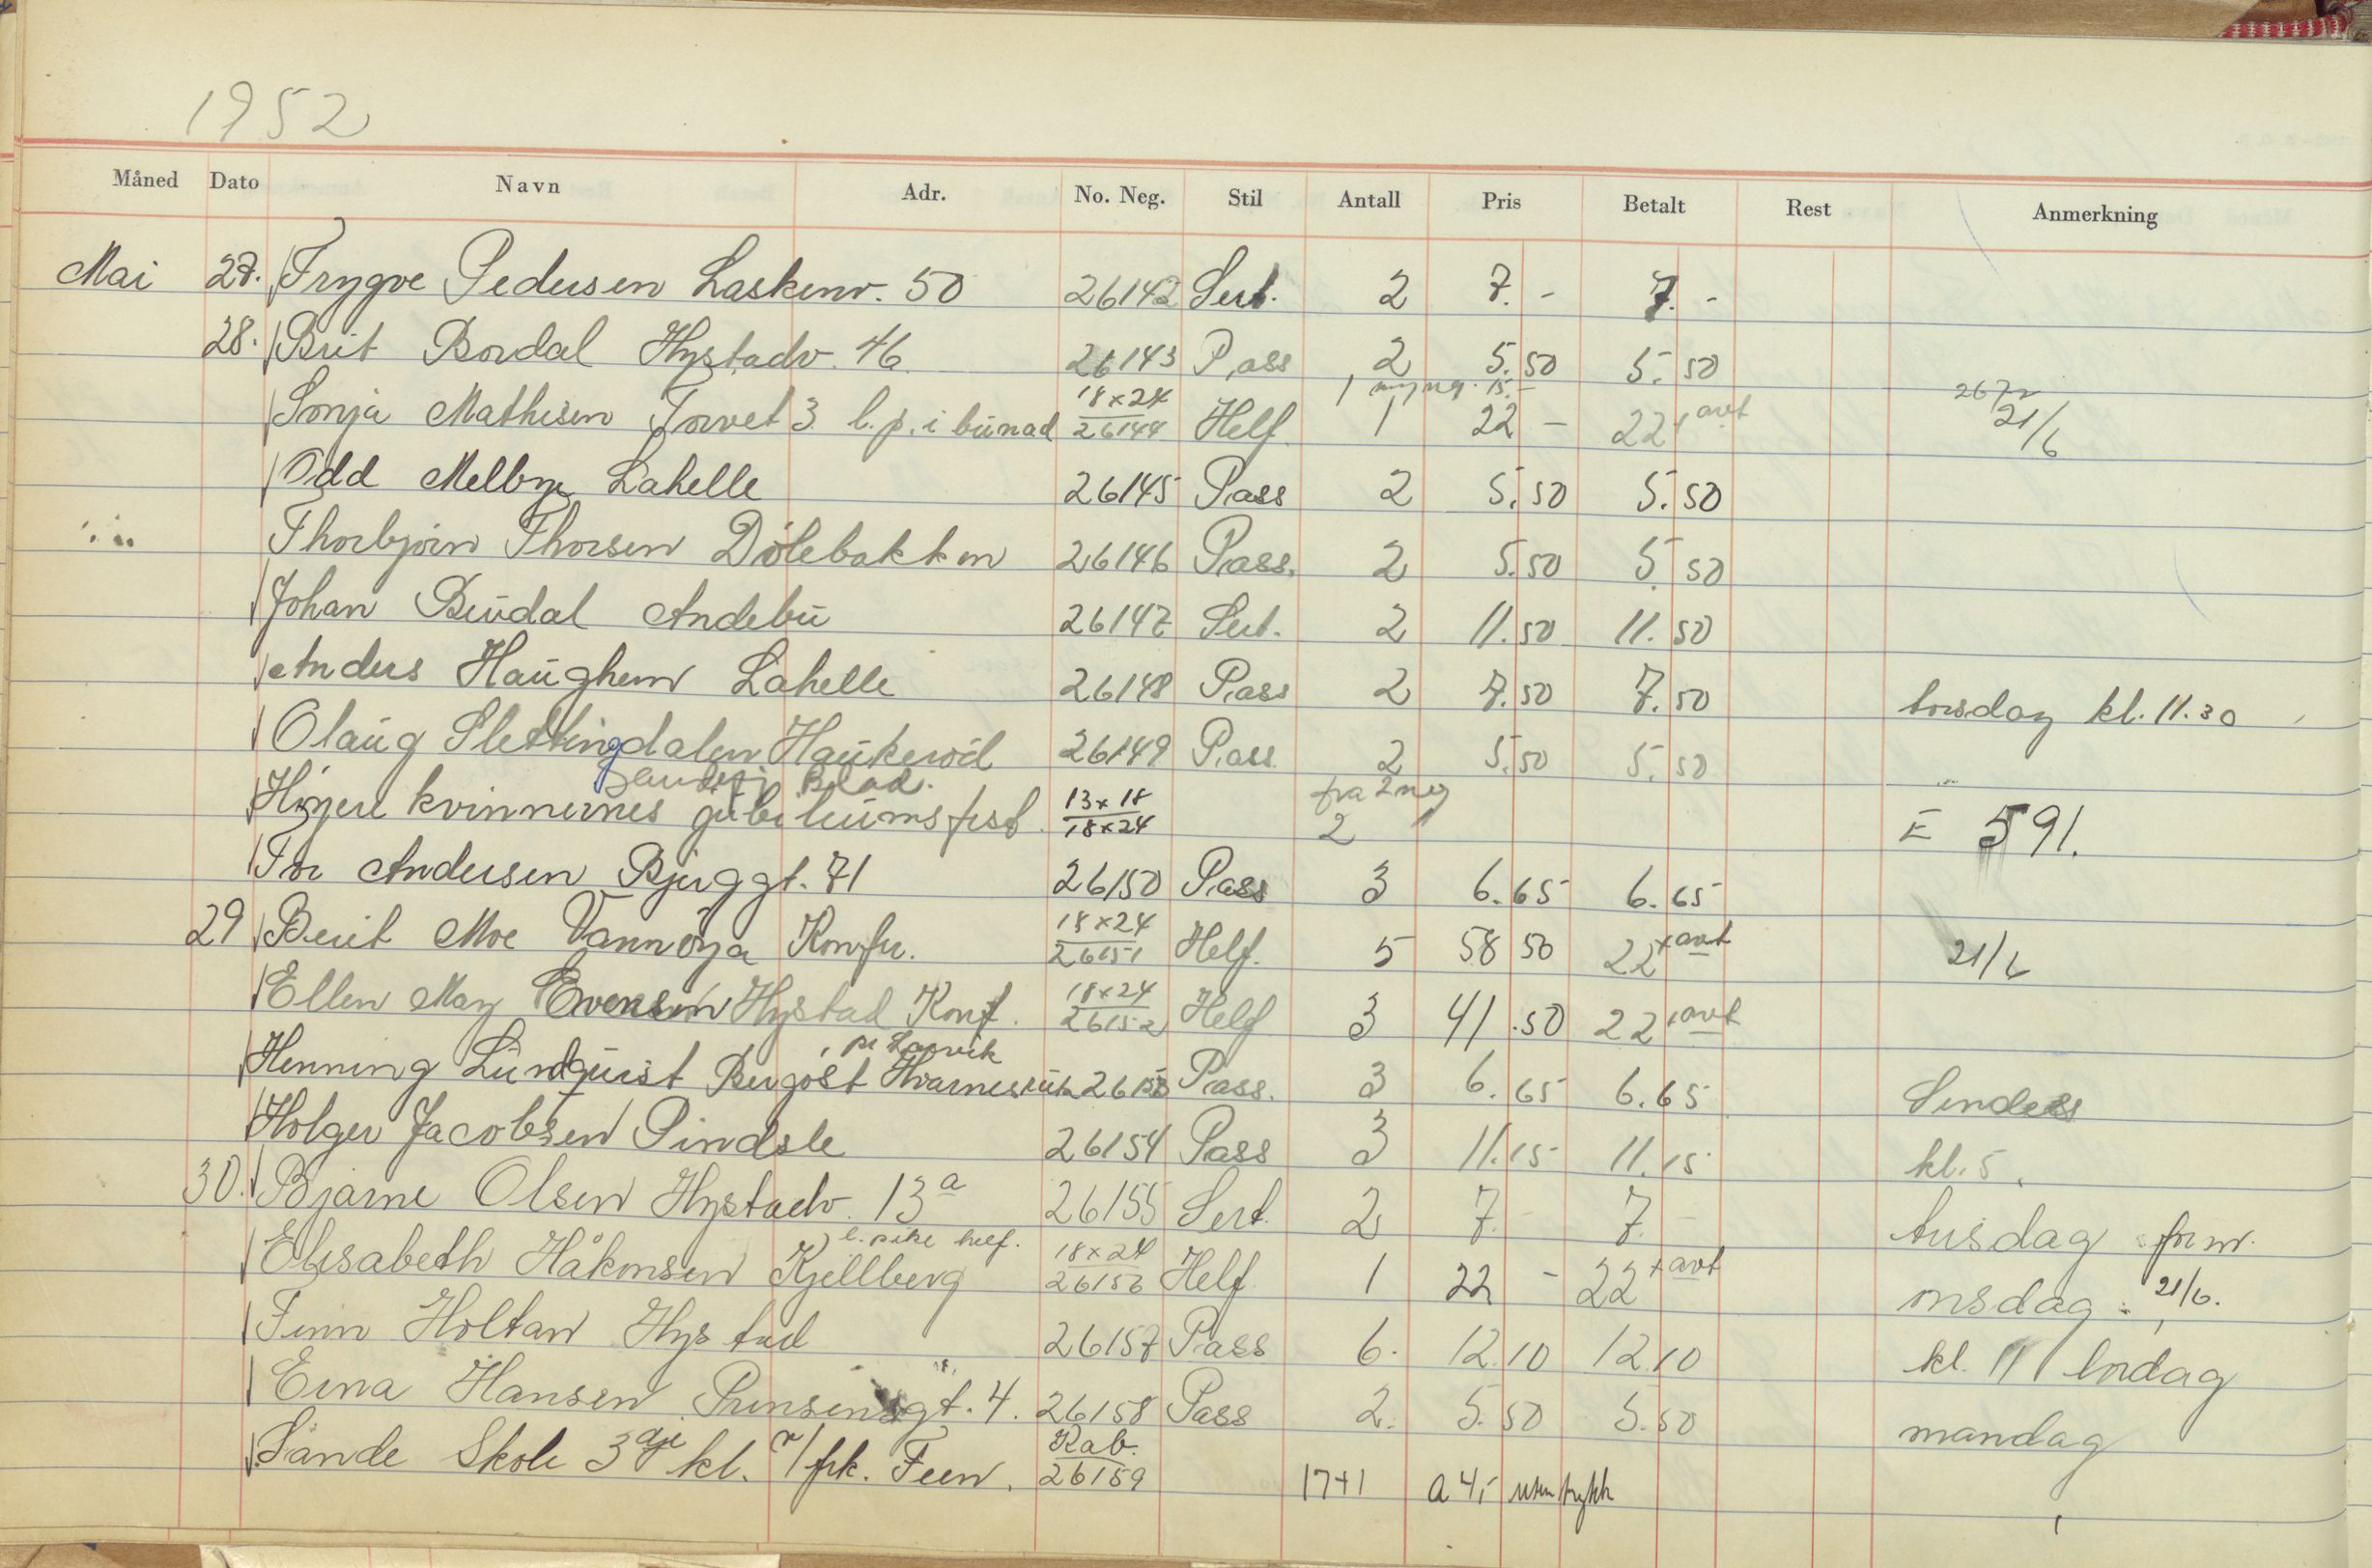 1952
Måned Dato Navn Adr. No. Neg. Stil Antall Pris Betalt Rest Anmerkning
Mai 27. Trygve Pedersen Laskenv. 50 26142 Sert. 2 7. - 7. -
28. Brit Bordal Hystadv. 46. 26143 Pass 2 5.50 5.50
1 15.- 
Sonja Mathisen Torvet 3. l.p. i bunad 18x24 26144 Helf. 1 22 - 22 + avt 21/6
Odd Melbye Lahelle 26145 Pass 2 5.50 5.50
Thorbjørn Thorsen Dölebakken 26146 Pass. 2 5.50 5.50
Johan Andebu 26147 Sert. 2 11.50 11.50
Anders Haughem Lahelle 26148 Pass 2 7.50 7.50 torsdag kl. 11.30
Olaug Slettingdalen Haukeröd 26149 Pass. 2 5.50 5.50
Sandefj. Blad. fra 2 neg
Höyere kvinnernes jubileumsfest. 13x18 18x24 2 E 591.
Tor Andersen Bjerggt. 71 26150 Pass 3 6.65 6.65
29 Berit Moe Vannöya Konfir. 18x24 26151 Helf. 5 58 50 22 + avt 21/6
Ellen May Evensen Hystad Konf. 18x24 26152 Helf 3 41.50 22 + avt
pr Larvik
Henning Lundquist 26153 Pass. 3 6.65 6.65 Sendes
Holger Jacobsen Pindsle 26154 Pass 3 11.15 11.15 kl. 5.
30. Bjarne Olsen Hystadv. 13a 26155 Sert. 2 7. - 7. - tirsdag form.
l. pike helf.
Elisabeth Håkonsen Kjellberg 18x24 26156 Helf 1 22 - 22 + avt onsdag 21/6.
Finn Holtan Hystad 26157 Pass 6. 12.10 12.10 kl. 11 lördag
Erna Hansen Prinsensgt. 4. 26158 Pass 2. 5.50 5.50 mandag
Sande Skole 3dje kl. v/ frk. Feen. Kab. 26159 17+1 a 4,- uten trykk